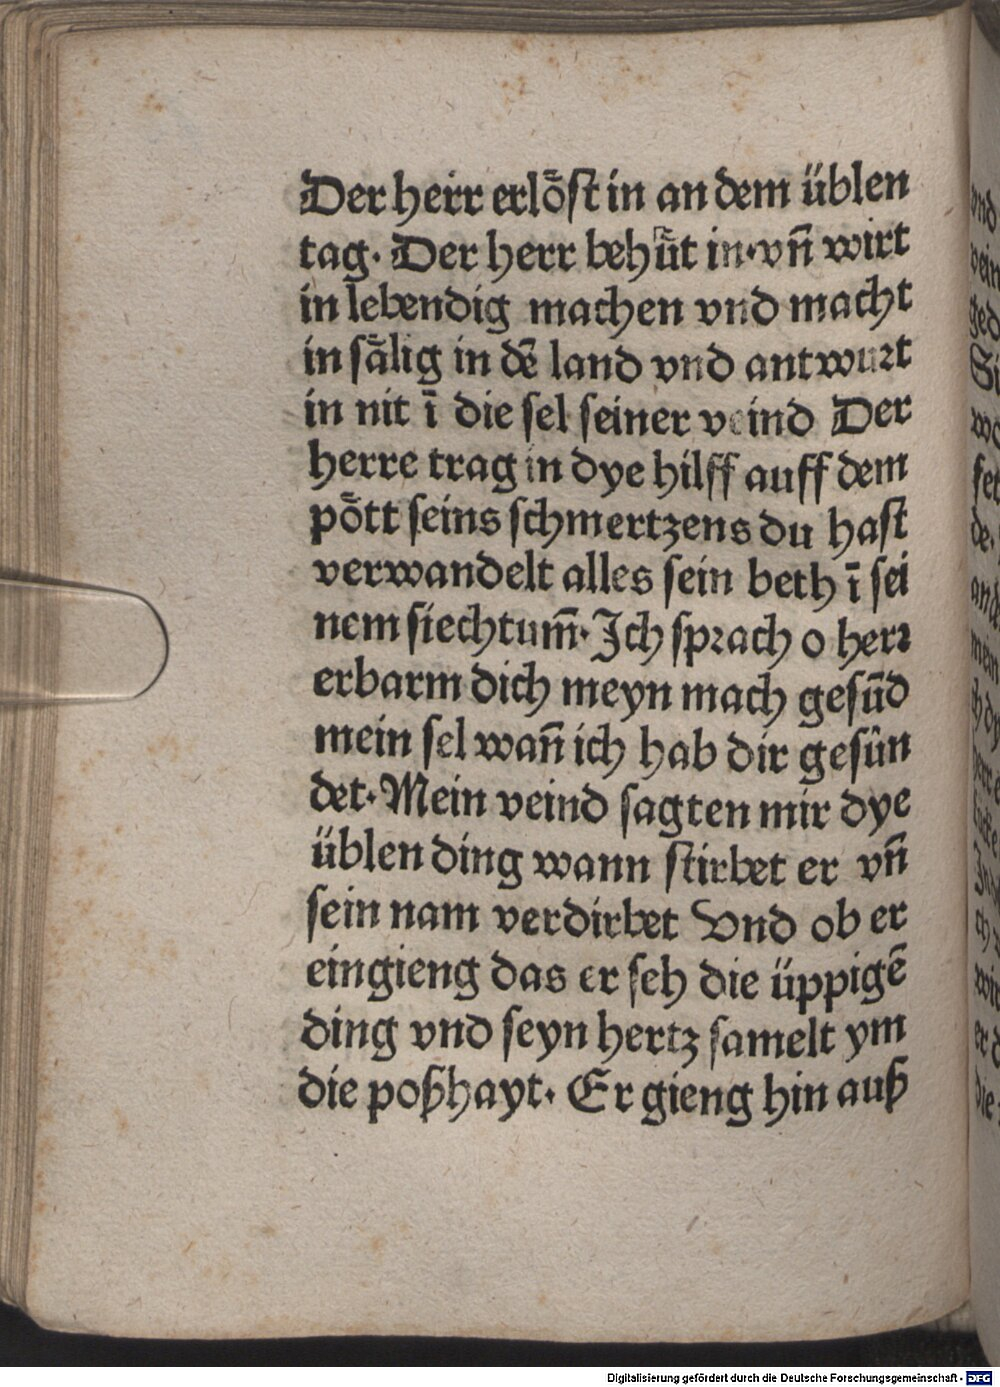 Der herr erlöſt in an dem üblen
tag. Der herr behuͤt in.vnd̄ wirt
in lebendig machen vnd macht
in ſälig in dē land vnd antwurt
in nit ī die ſel ſeiner veind Der
herre trag in dye hilff auff dem
pött ſeins ſchmertzens du haſt
verwandelt alles ſein beth ī ſei
nem ſiechtum̄. Ich ſprach o herr
erbarm dich meyn mach geſūd
mein ſel wan̄ ich hab dir geſün
det. Mein veind ſagten mir dye
üblen ding wann ſtirbet er vn̄
ſein nam verdirbet Vnd ob er
eingieng das er ſeh die üppigē
ding vnd ſeyn hertz ſamelt ym
die poßhayt. Er gieng hin auß
Digitalisierung gefördert durch die Deutsche Forschungsgemeinschaft - DFG